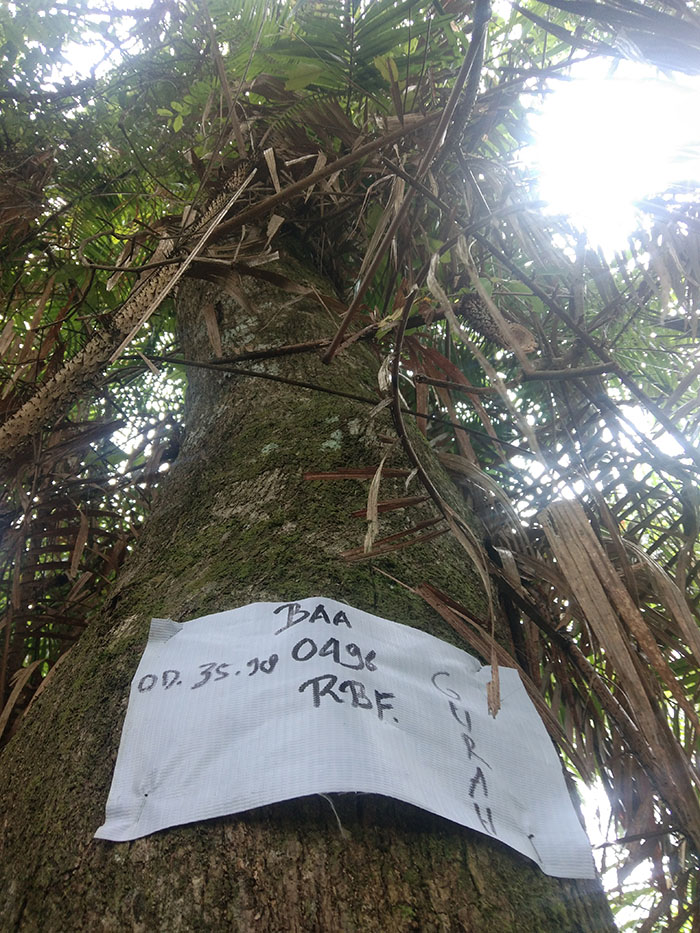 BAA
0496
OD. 35.98
RBF.
GURAH